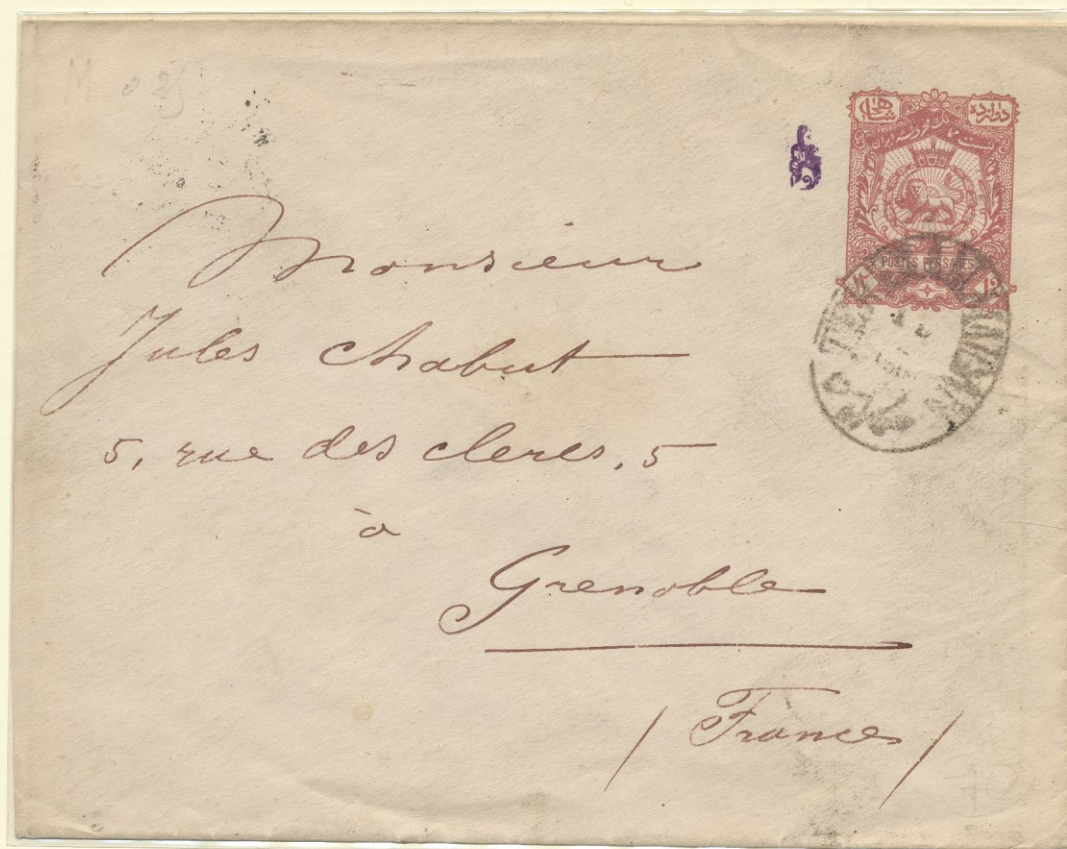 شاهی
دوازده
POSTES PERSANES
12
Monsieur
Jules Chabut
5, rue des clercs, 5
à
Grenoble
(France)